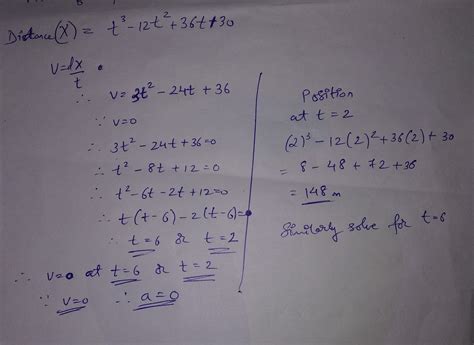 Distance(X) = t³-12t²+36t+30
V=dx/t
∴ v= 3t² - 24t + 36
∵ v=0
∴ 3t² -24t +36=0
∴ t² - 8t + 12=0
∴ t²-6t-2t+12=0
∴ t(t-6)-2(t-6)=0
∴ t=6 or t=2
∴ v=0 at t=6 or t=2
∵ v=0 ∴ a=0
Position
at t=2
(2)³ - 12(2)²+36(2)+30
= 8 - 48 + 72 +36
= 148 m
Similarly solve for t=6